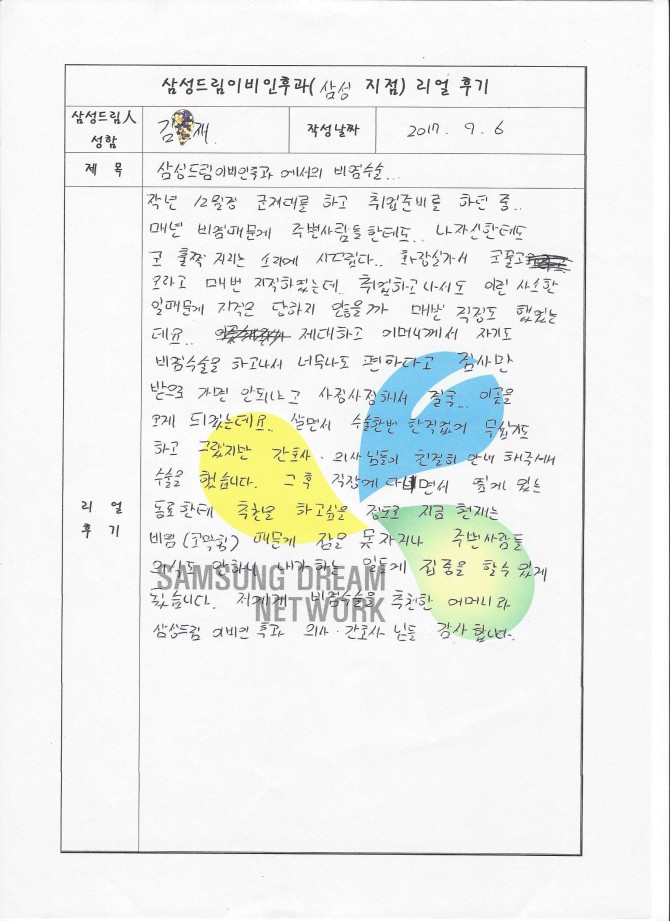 삼성드림이비인후과(삼성 지점) 리얼 후기
삼성드림人
성함
김 재.
작성날짜
2017. 9. 6
제 목
삼성드림이비인후과 에서의 비염수술...
작년 12월경 군제대를 하고 취업준비를 하던 중..
매년 비염때문에 주변사람들한테도.. 나자신한테도
코 훌쩍 거리는 소리에 시드렸다.. 화장실가서 코풀고
오라고 매번 지적하였는데.. 취업하고나서도 이런 사소한
일때문에 지적은 당하지 않을까 매번 걱정도 했었는
데요.. 제대하고 어머니께서 자기도
비염수술을 하고나서 너무나도 편하다고 검사만
받으로 가면 안되냐고 사정사정해서 결국.. 이곳을
오게 되었는데요. 살면서 수술한번 한적없어 무섭기도
하고 그랬지만 간호사 · 의사님들이 친절히 안내 해주셔서
수술을 했습니다. 그후 직장에 다니면서 옆에 있는
동료한테 추천을 하고싶을 정도로 지금 현재는
비염(코막힘) 때문에 잠을 못자거나 주변사람들
의식도 안하니 내가 하는 일들에 집중을 할수 있게
되었습니다. 저에게 비염수술을 추천한 어머니와
삼성드림 이비인 후과 의사 · 간호사 님들 감사 합니다.
리 얼
후 기
SAMSUNG DREAM
NETWORK